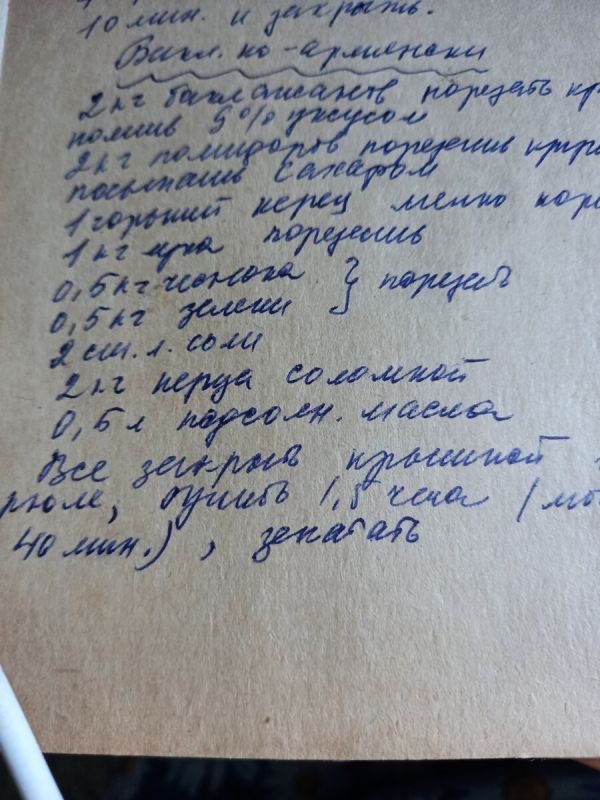 10 мин. и закрыть.
Бакл. по-армянски
2 кг баклажанов порезать кр
полив 9% уксусом
2 кг помидоров порезать кру
посыпать сахаром
1 горький перец мелко поре
1 кг лука порезать
0,5 кг чеснока } порезать
0,5 кг зелени
2 ст. л. соли
2 кг перца соломкой
0,5 л подсолн. масла
Все закрыть крышкой
рюле, тушить 1,5 часа / мо
40 мин.), закатать